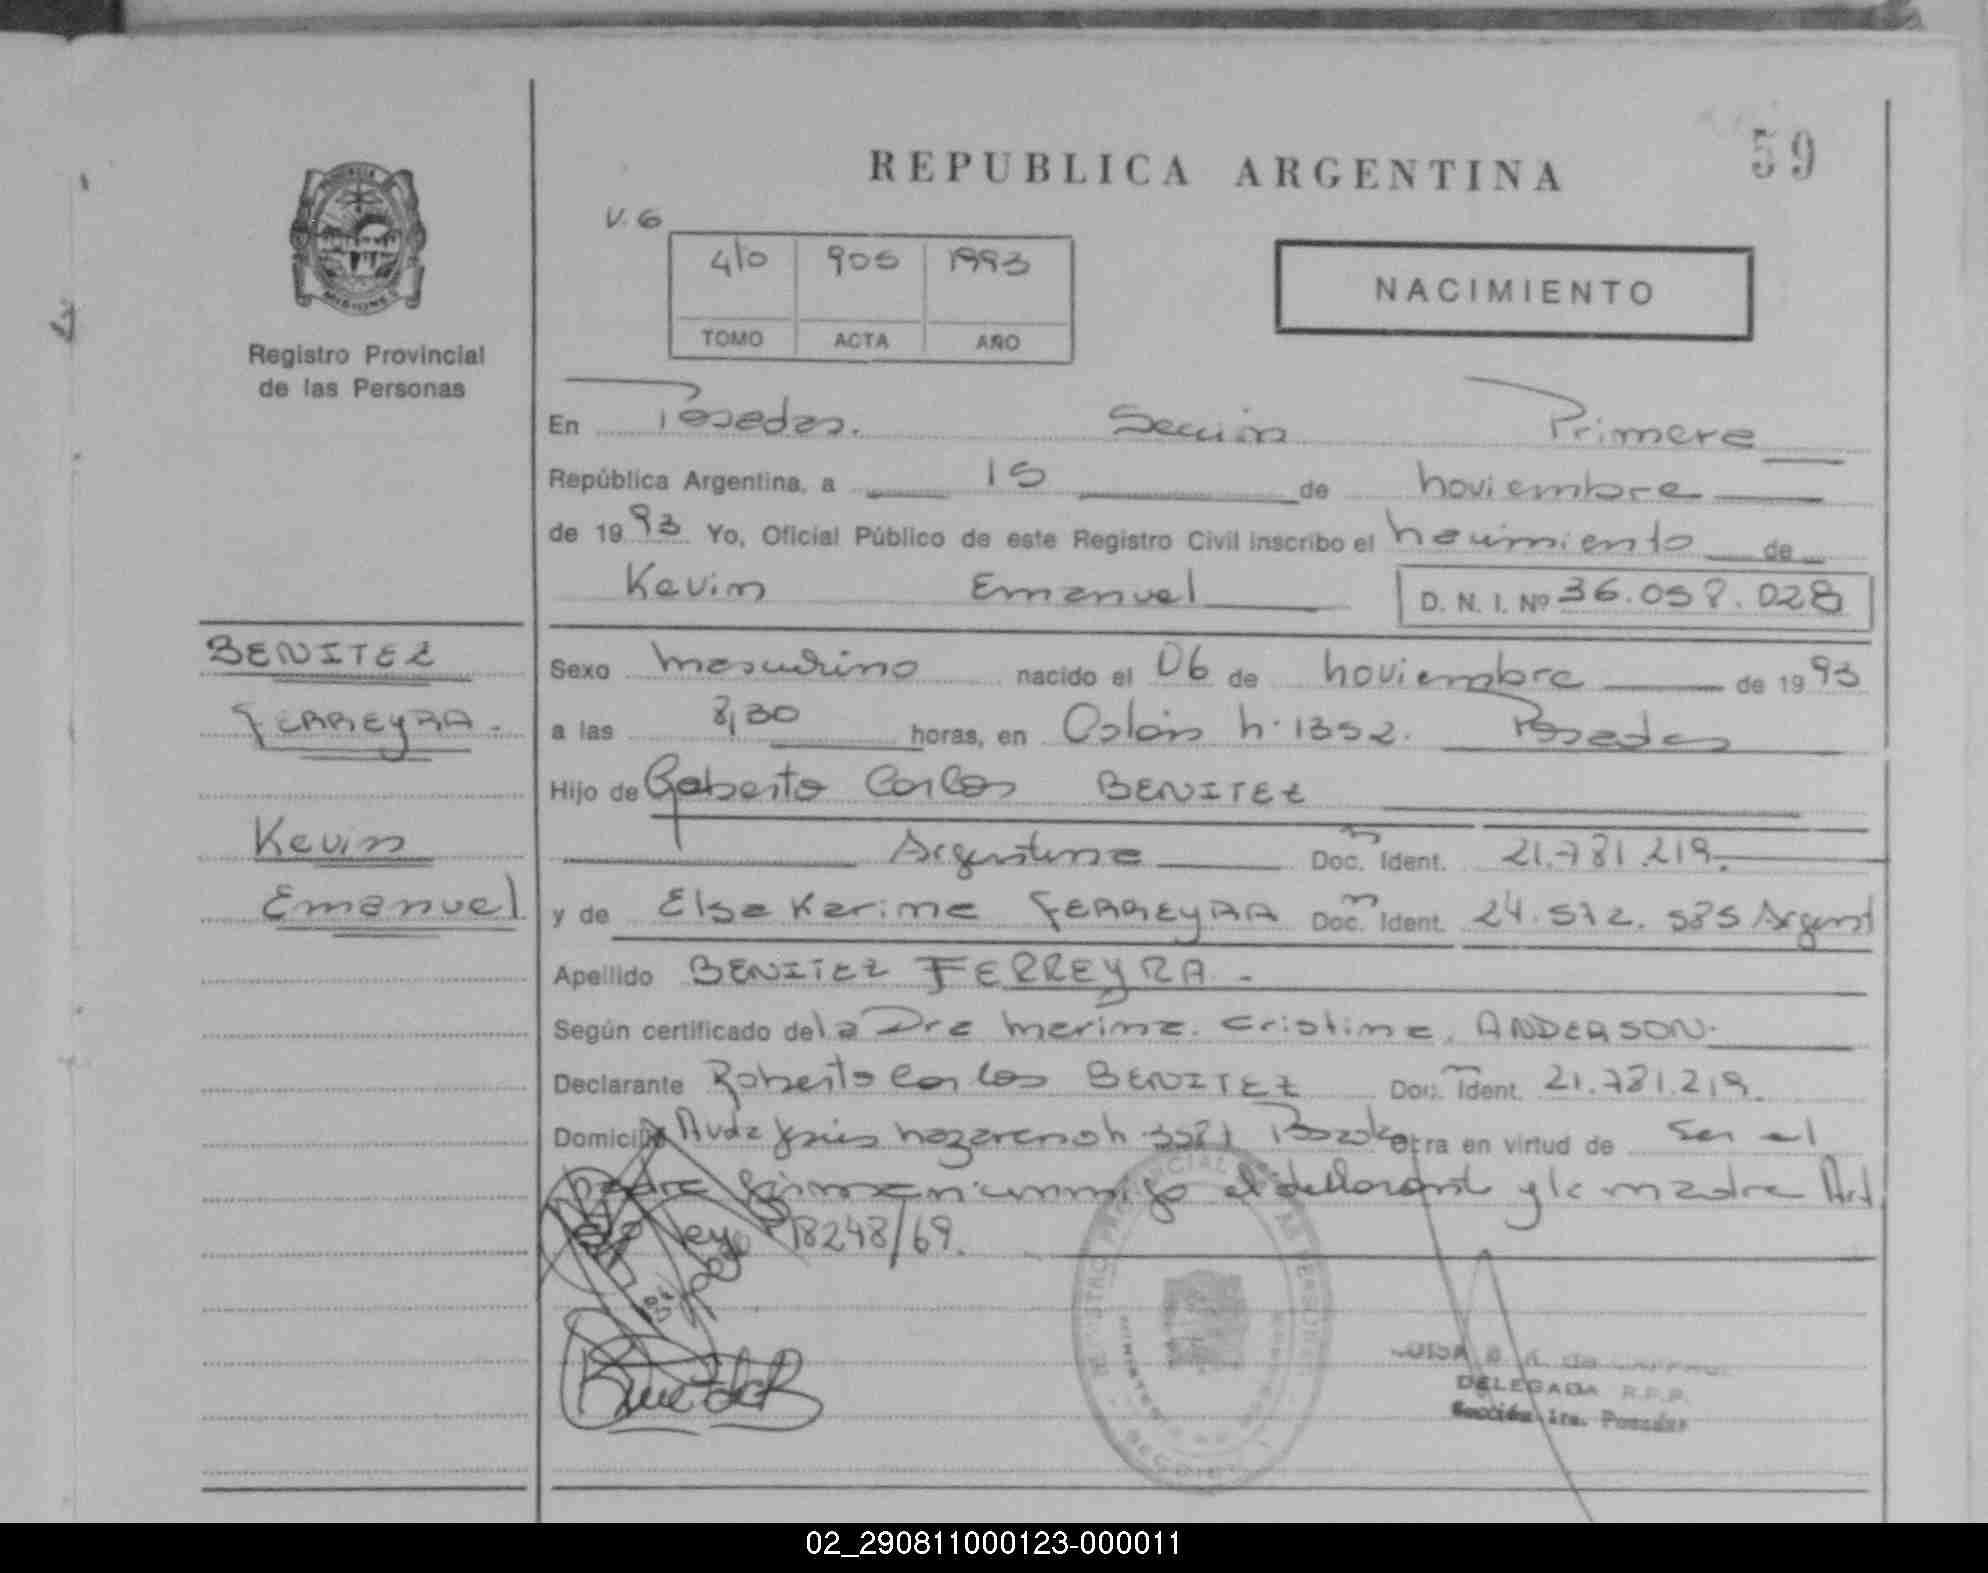 59
REPUBLICA ARGENTINA
V. 6
4/0 905 1993
TOMO ACTA AÑO
NACIMIENTO
MISIONES
Registro Provincial
de las Personas
En Posadas. Sección Primera
República Argentina, a 15 de noviembre
de 1993 Yo, Oficial Público de este Registro Civil inscribo el nacimiento de
Kevin Emanuel D. N. I. Nº 36.058.028
BENITEZ
FERREYRA.
Kevin
Emanuel
Sexo masculino nacido el 06 de noviembre de 1993
a las 8,30 horas, en Colón n. 1352. Posadas
Hijo de Roberto Carlos BENITEZ
Argentina Doc. Ident. 21.781.219.
y de Elsa Karina FERREYRA Doc. Ident. 24.572.585 Argent
Apellido BENITEZ FERREYRA.-
Según certificado de la Dra Marina. Cristina. ANDERSON.
Declarante Roberto Carlos BENITEZ Doc. Ident. 21.781.219.
Domicilio Avda Jesús nazareno n 3581 obra en virtud de ser el
padre firman conmigo el declarante y la madre Art
Ley 18248/69.
DELEGADA R.P.P.
Sección 1ra. Posadas
02_290811000123-000011